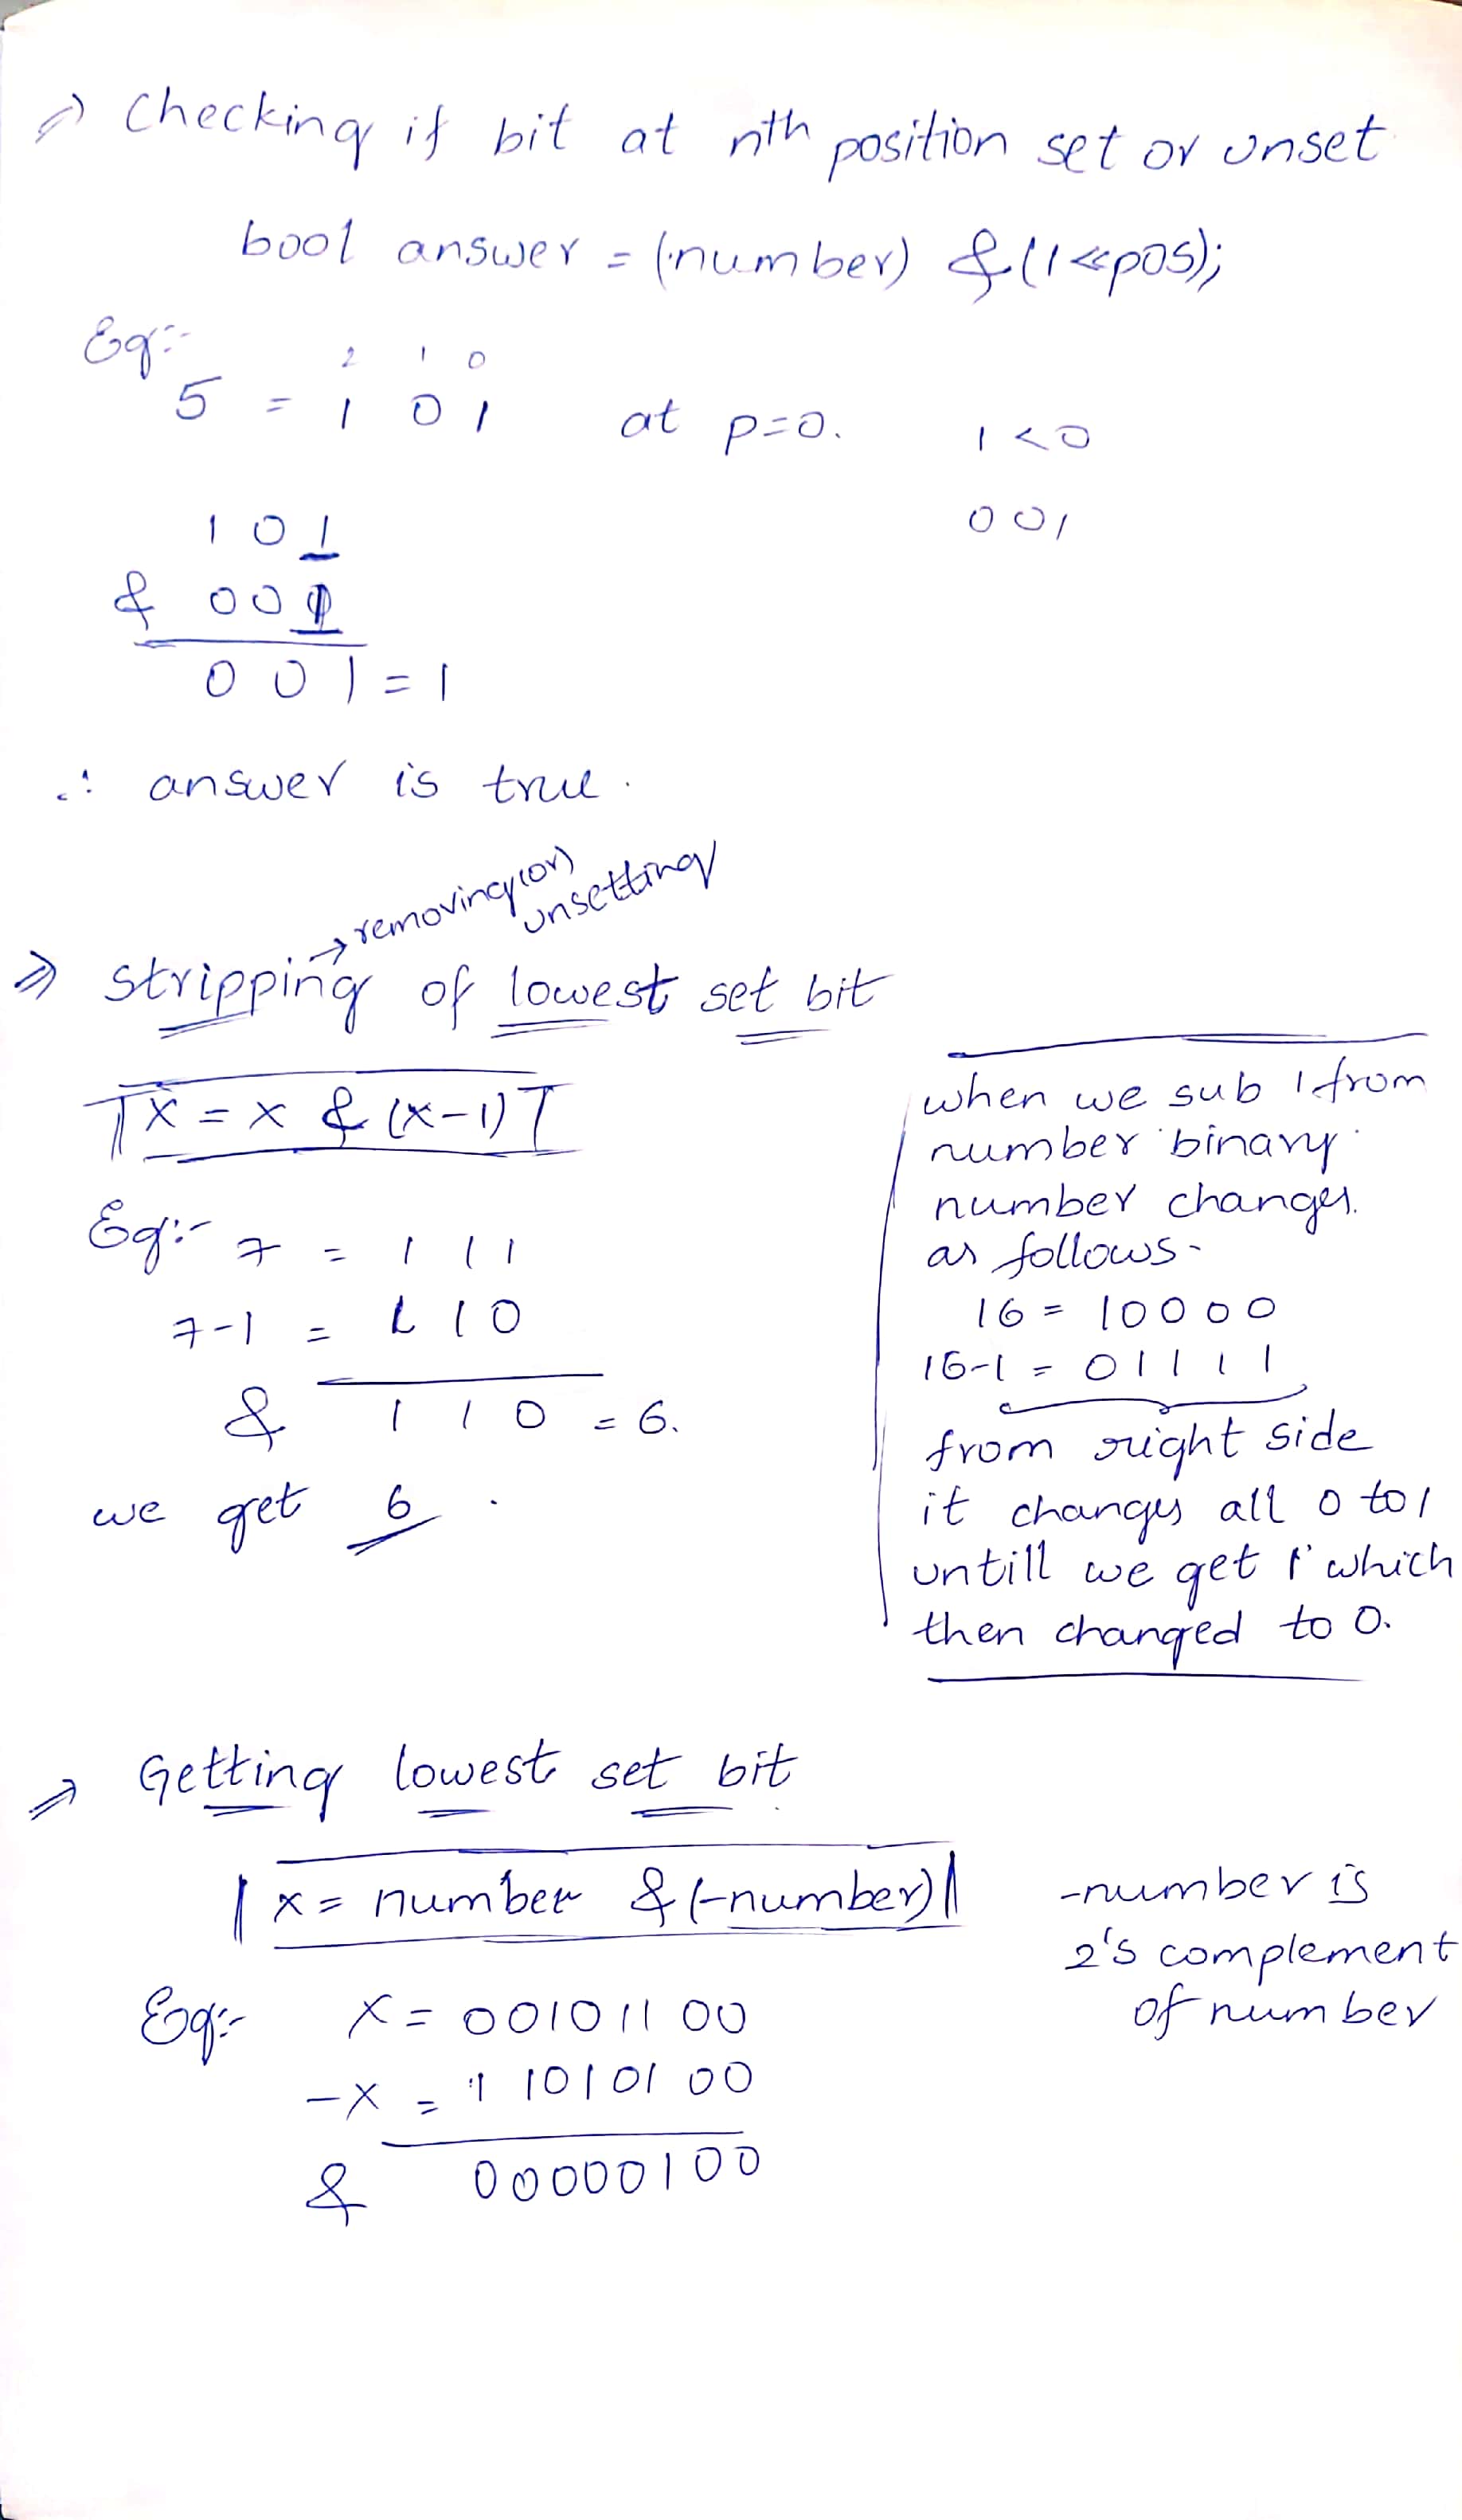 ⇒ Checking if bit at nth position set or unset
bool answer = (number) & (1<<pos);
Eg:-
2 1 0
5 = 1 0 1 at p=0. 1<0
001
101
& 001
001 = 1
∴ answer is true.
→ removing (or) unsetting
⇒ stripping of lowest set bit
X = x & (x-1)
Eg:- 7 = 1 1 1
7-1 = 1 1 0
& 1 1 0 = 6.
we get 6.
when we sub 1 from
number binary
number changes.
as follows-
16 = 10000
16-1 = 01111
from right side
it changes all 0 to 1
untill we get 1 which
then changed to 0.
⇒ Getting lowest set bit
x = number & (-number)
-number is
2's complement
of number
Eg:- X = 00101100
-X = 11010100
& 00000100